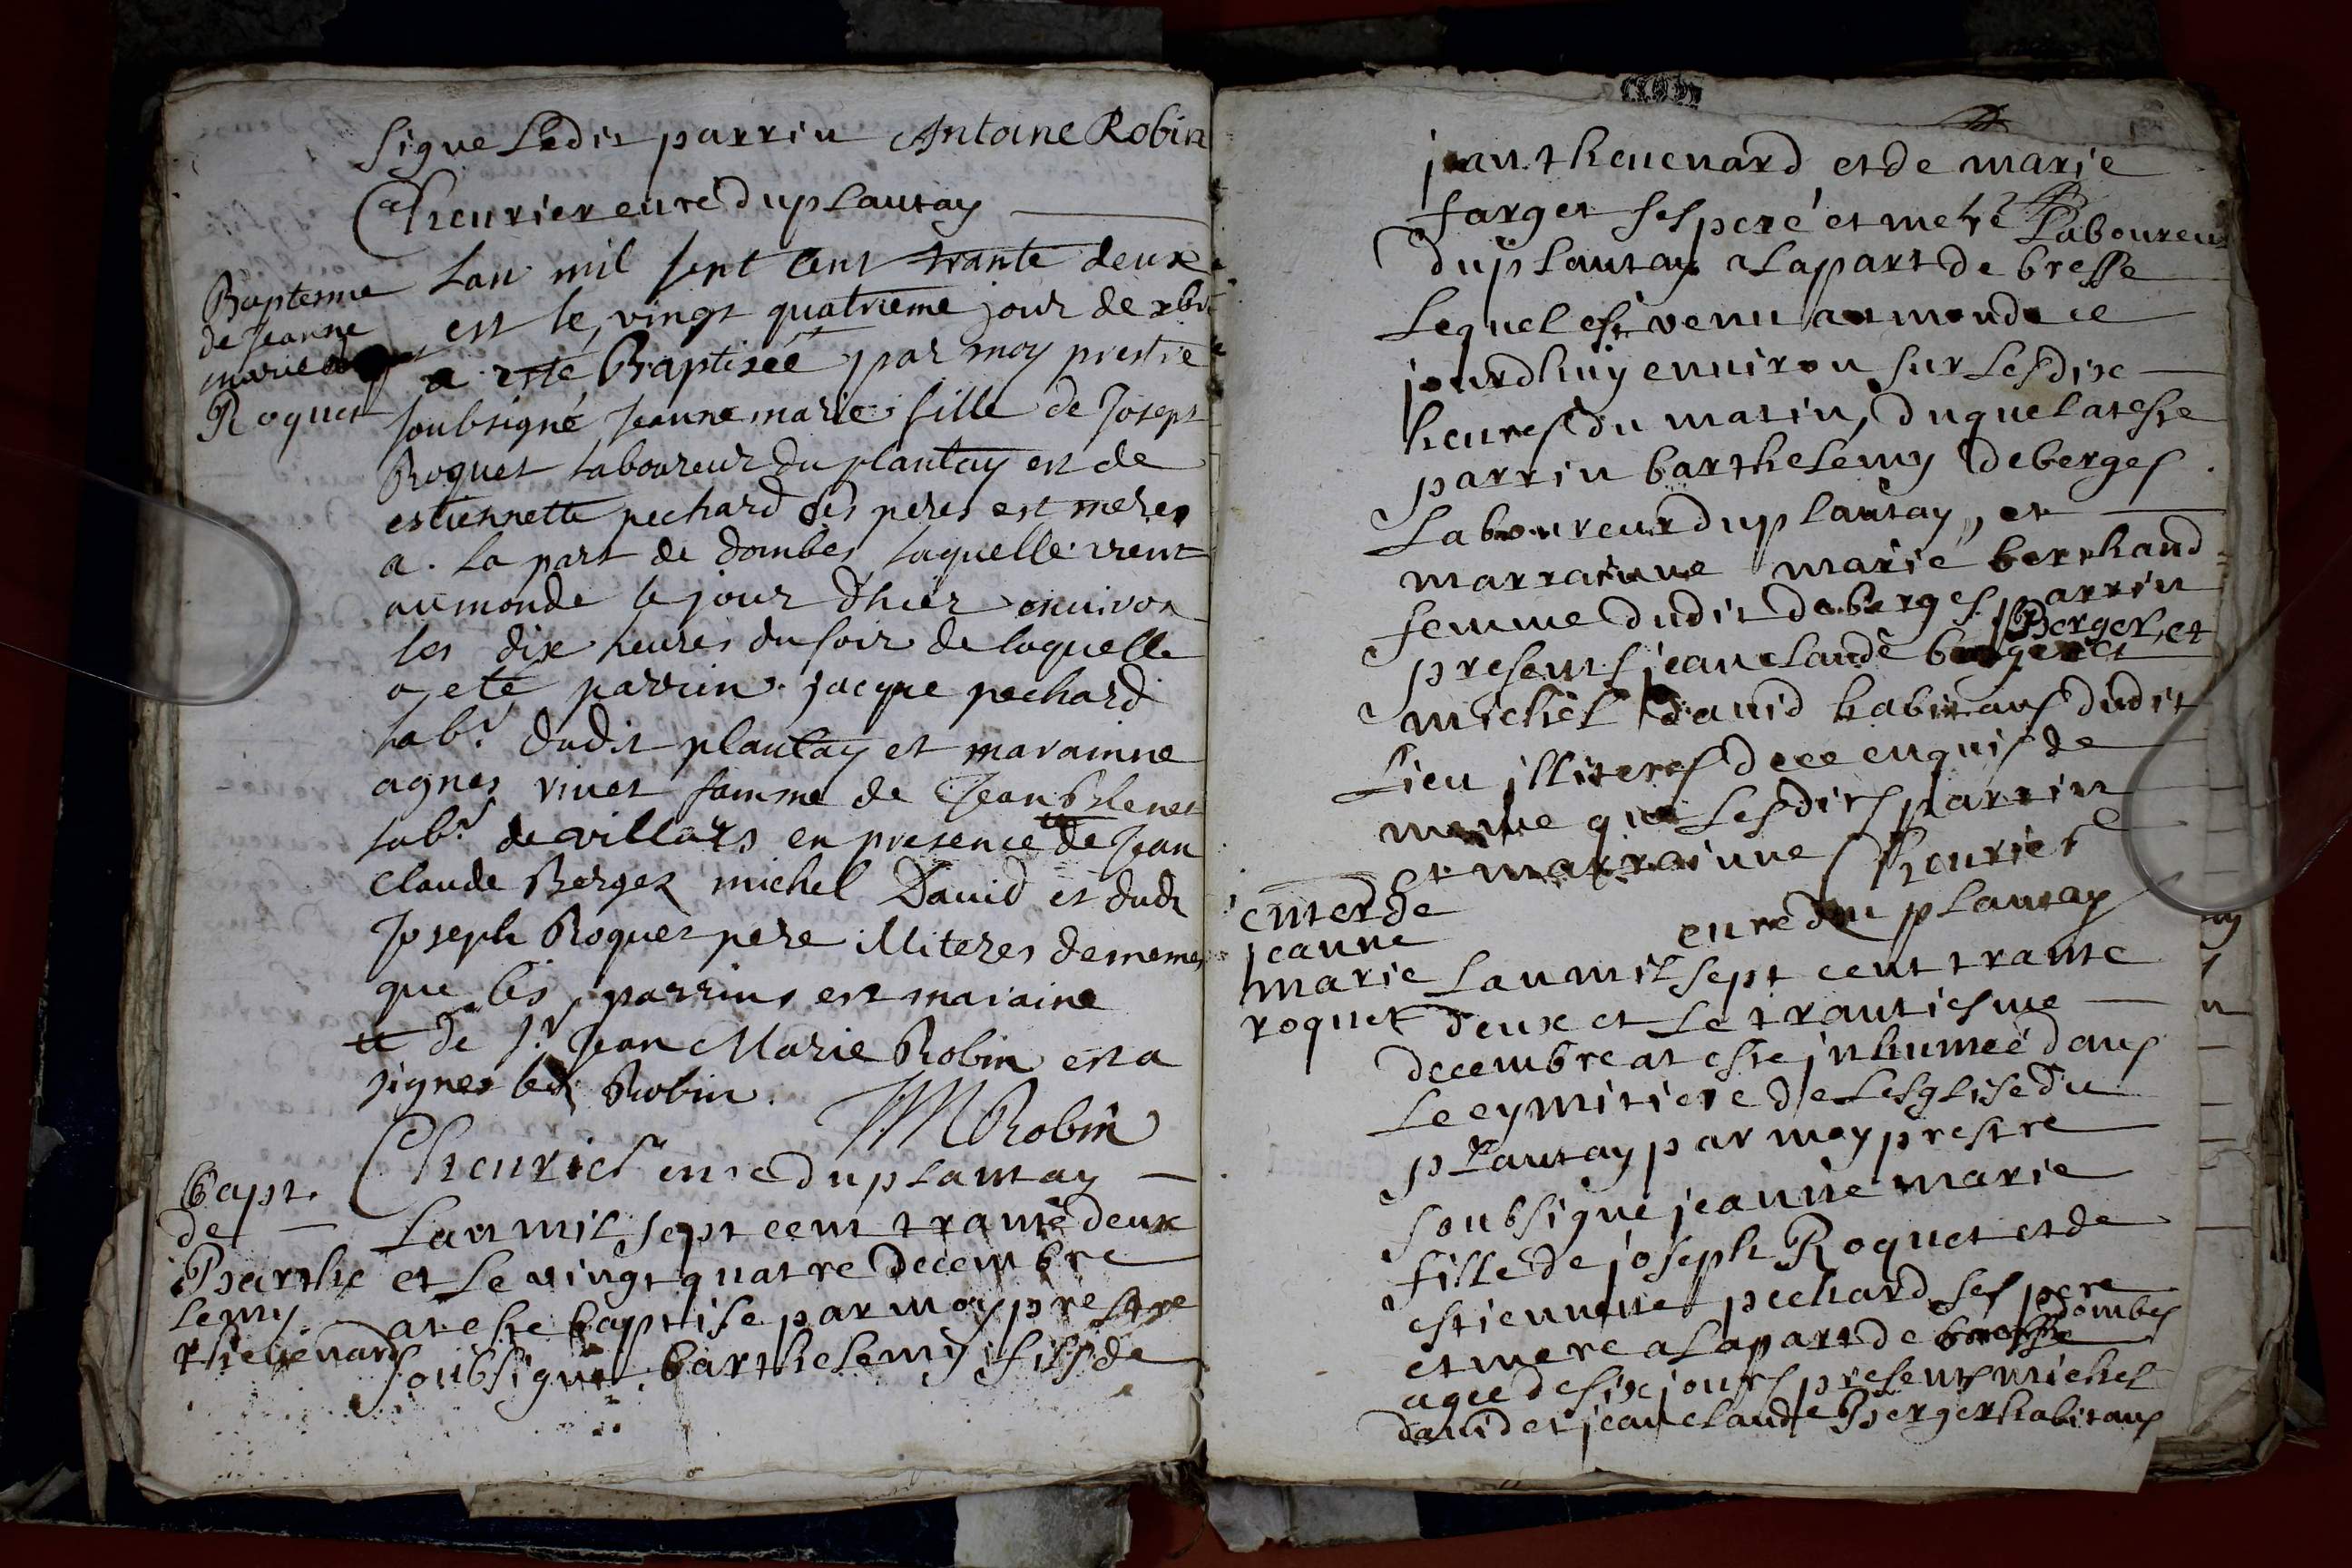 signe Ledit parrin Antoine Robin
Cheurier curé du plantay
Baptesme
de Jeanne
marie
Roquet
Lan mil sept cent trante deux
est le vingt quatrieme jour de xbre
a esté Baptisée par moy prestre
soubsigné Jeanne marie fille de Joseph
Roquet laboureur du plantay est de
estiennette pechard ses peres est meres
a la part de dombes laquelle vient
au monde le jour d'hier enuiron
les dix heures du soir de laquelle
a ete parrin jacque pechard
labr dudit plantay et maraine
agnes viuet famme de Jean
labr de villars en presence de Jean
Claude Berger michel Dauid et dudt
Joseph Roquet pere illiteres de memes
que les parrins est maraine
et de sr Jean Marie Robin est a
signer led Robin.
JM Robin
Cheurier curé du plantay
bapt.
de
Barthe
lemy
theuenard
Lan mil sept cent trante deux
et Le vingt quatre decembre
at este baptise par moy prestre
soubsigné barthelemy fils de
jean theuenard et de marie
farget ses peré et mere Laboureur
du plantay a La part de bresse
Lequel est venu au monde ce
jourdhuy enuiron sur Les dix
heures du matin, duquel at este
parrin barthelemy deberges
Laboureur du plantay, et
marrainne marie berthaud
femme dudit deberges parrin
Berger, et
presents jean claude
michel dauid habitans dudit
Lieu jlliteres de ce enquis de
mesme que Lesdits parrin
et marrainne Cheurier
curé du plantay
enter de
jeanne
marie
roquet
Lan mil sept cent trante
deux et Le trantiesme
decembre at este jnhumeé dans
Le cymitiere de Lesglise du
plantay par moy prestre
soubsigné jeanne marie
fille de joseph Roquet et de
estiennette pechard ses pere
dombes
et mere a La part de bresse
agee de six jours presents michel
dauid et jean claude Berger habitans